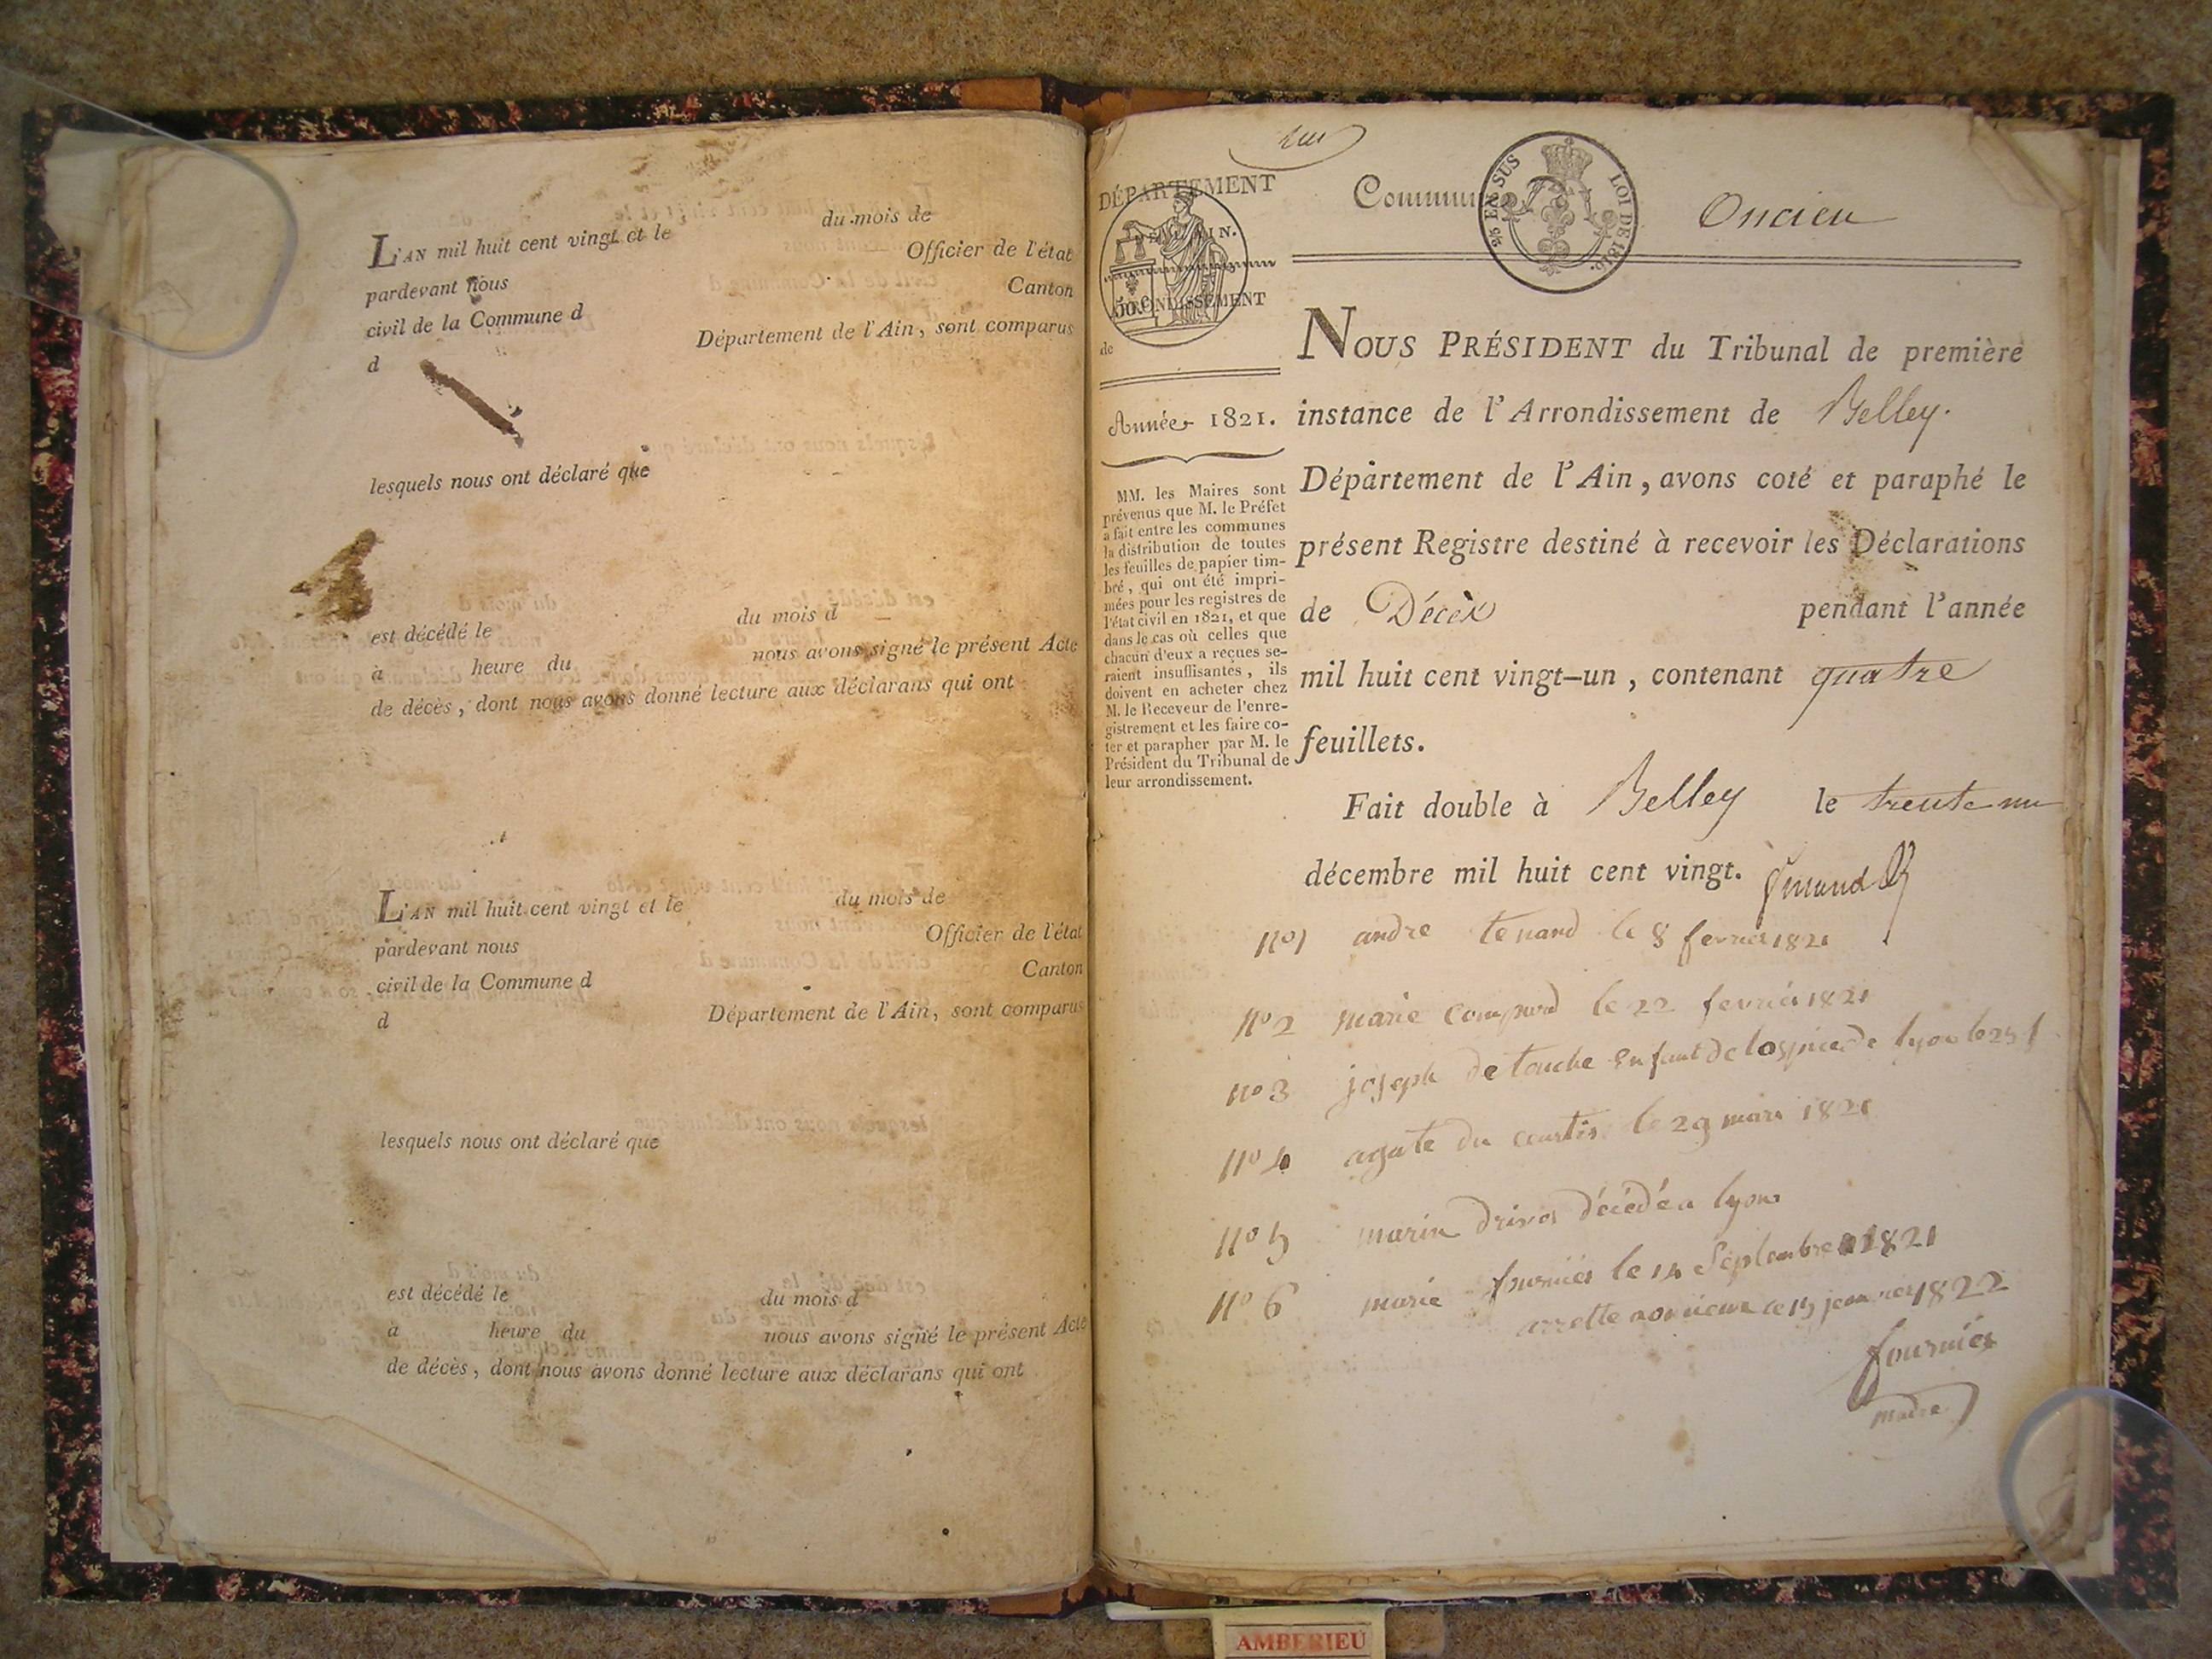 L'AN mil huit cent vingt et le du mois de
pardevant nous Officier de l'état
civil de la Commune d Canton
d Département de l'Ain, sont comparus
lesquels nous ont déclaré que
est décédé le du mois d
à heure du nous avons signé le présent Acte
de décès, dont nous avons donné lecture aux déclarans qui ont
L'AN mil huit cent vingt et le du mois de
pardevant nous Officier de l'état
civil de la Commune d Canton
d Département de l'Ain, sont comparus
lesquels nous ont déclaré que
est décédé le du mois d
à heure du nous avons signé le présent Acte
de décès, dont nous avons donné lecture aux déclarans qui ont
DÉPARTEMENT
DE L'AIN.
ARRONDISSEMENT
50.c
de
Année 1821.
MM. les Maires sont
prévenus que M. le Préfet
a fait entre les communes
la distribution de toutes
les feuilles de papier tim-
bré, qui ont été impri-
mées pour les registres de
l'état civil en 1821, et que
dans le cas où celles que
chacun d'eux a reçues se-
raient insuffisantes, ils
doivent en acheter chez
M. le Receveur de l'enre-
gistrement et les faire co-
ter et parapher par M. le
Président du Tribunal de
leur arrondissement.
Commune Oncieu
EN SUS LOI DE 1816.
NOUS PRÉSIDENT du Tribunal de première
instance de l'Arrondissement de Belley.
Département de l'Ain, avons coté et paraphé le
présent Registre destiné à recevoir les Déclarations
de Décès pendant l'année
mil huit cent vingt-un, contenant quatre
feuillets.
Fait double à Belley le trente un
décembre mil huit cent vingt.
no 1 andre tenand le 8 fevrier 1821
no 2 marie le 22 fevrier 1821
no 3 joseph de touche enfant de lospice de lyon le
no 4 agate du courtis le 29 mars 1821
no 5 décédé a lyon
no 6 marie fournier le 14 Septembre 1821
le 15 janvier 1822
fournier
maire
AMBERIEU